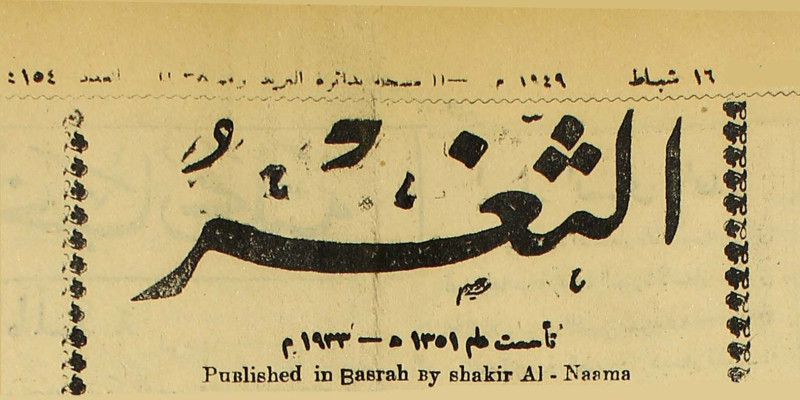 ١٦ شباط ١٩٤٩ م — مسجلة بدائرة البريد العدد ٤١٥٤
الثغر
تأسست عام ١٣٥١ ه — ١٩٣٣ م
Published in Basrah By shakir Al - Naama